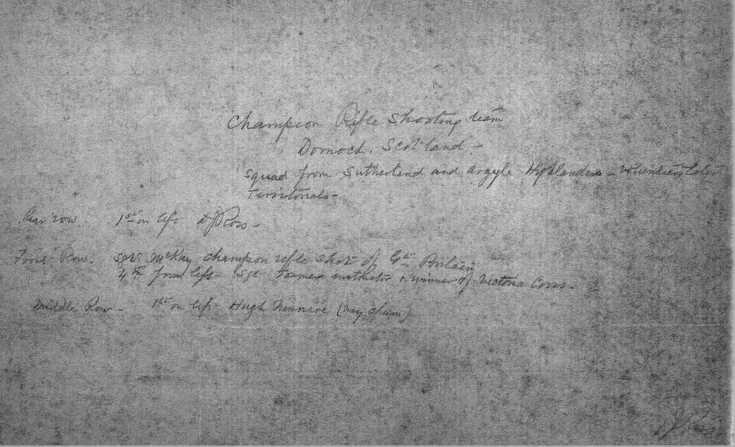 Champion Rifle Shooting team
Dornoch. Scotland -
Squad from Sutherland and Argyle Highlanders - volunteers later
Territorials -
Rear row. 1st on left D Ross -
Front Row. Sgt. McKay champion rifle shot of Gt. Britain
4th from left - Sgt. Farmer & winner of Victoria Cross -
Middle Row - 1st on left - Hugh (Bay Chum)